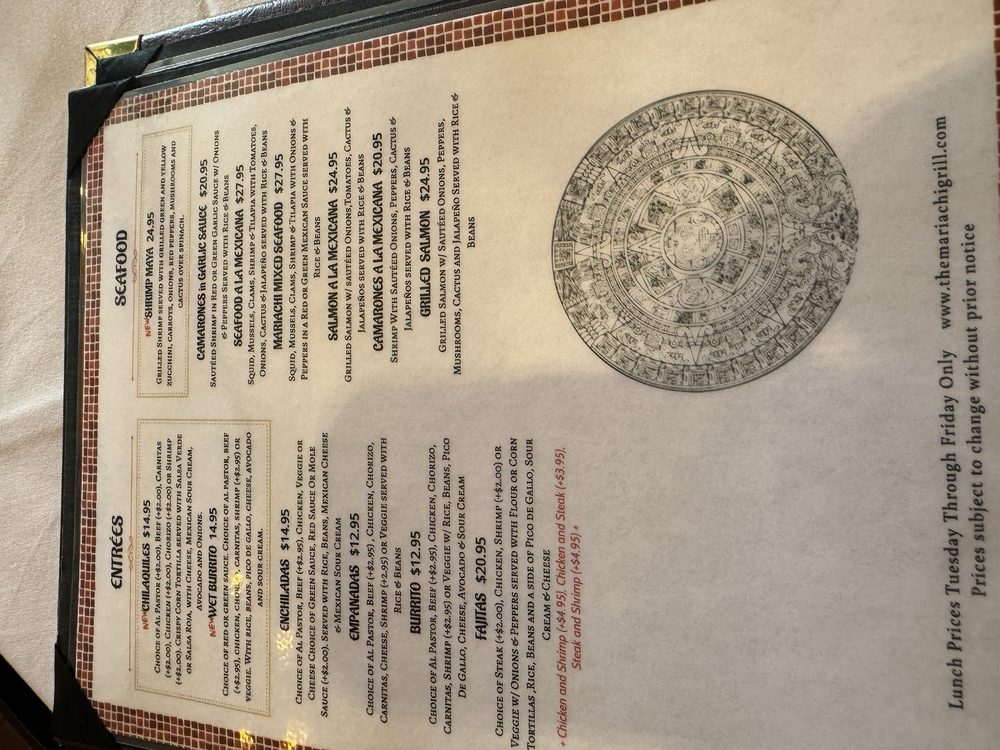 ENTRÉES
NEW CHILAQUILES $14.95
CHOICE OF AL PASTOR (+$2.00), BEEF (+$2.00), CARNITAS
(+$2.00), CHICKEN (+$2.00), CHORIZO (+$2.00) OR SHRIMP
(+$2.00). CRISPY CORN TORTILLA SERVED WITH SALSA VERDE
OR SALSA ROJA, WITH CHEESE, MEXICAN SOUR CREAM,
AVOCADO AND ONIONS.
NEW WET BURRITO 14.95
CHOICE OF RED OR GREEN SAUCE. CHOICE OF AL PASTOR, BEEF
(+$2.95), CHICKEN, CARNITAS, SHRIMP (+$2.95) OR
VEGGIE. WITH RICE, BEANS, PICO DE GALLO, CHEESE, AVOCADO
AND SOUR CREAM.
ENCHILADAS $14.95
CHOICE OF AL PASTOR, BEEF (+$2.95), CHICKEN, VEGGIE OR
CHEESE CHOICE OF GREEN SAUCE, RED SAUCE OR MOLE
SAUCE (+$2.00). SERVED WITH RICE, BEANS, MEXICAN CHEESE
& MEXICAN SOUR CREAM
EMPANADAS $12.95
CHOICE OF AL PASTOR, BEEF (+$2.95) , CHICKEN, CHORIZO,
CARNITAS, CHEESE, SHRIMP (+2.95) OR VEGGIE SERVED WITH
RICE & BEANS
BURRITO $12.95
CHOICE OF AL PASTOR, BEEF (+$2.95), CHICKEN, CHORIZO,
CARNITAS, SHRIMP (+$2.95) OR VEGGIE W/ RICE, BEANS, PICO
DE GALLO, CHEESE, AVOCADO & SOUR CREAM
FAJITAS $20.95
CHOICE OF STEAK (+$2.00), CHICKEN, SHRIMP (+$2.00) OR
VEGGIE W/ ONIONS & PEPPERS SERVED WITH FLOUR OR CORN
TORTILLAS ,RICE, BEANS AND A SIDE OF PICO DE GALLO, SOUR
CREAM & CHEESE
+ Chicken and Shrimp (+$4.95), Chicken and Steak (+$3.95),
Steak and Shrimp (+$4.95) +
SEAFOOD
NEW SHRIMP MAYA 24.95
GRILLED SHRIMP SERVED WITH GRILLED GREEN AND YELLOW
ZUCCHINI, CARROTS, ONIONS, RED PEPPERS, MUSHROOMS AND
CACTUS OVER SPINACH.
CAMARONES in GARLIC SAUCE $20.95
SAUTÉED SHRIMP IN RED OR GREEN GARLIC SAUCE W/ ONIONS
& PEPPERS SERVED WITH RICE & BEANS
SEAFOOD A LA MEXICANA $27.95
SQUID, MUSSELS, CLAMS, SHRIMP & TILAPIA WITH TOMATOES,
ONIONS, CACTUS & JALAPEÑO SERVED WITH RICE & BEANS
MARIACHI MIXED SEAFOOD $27.95
SQUID, MUSSELS, CLAMS, SHRIMP & TILAPIA WITH ONIONS &
PEPPERS IN A RED OR GREEN MEXICAN SAUCE SERVED WITH
RICE & BEANS
SALMON A LA MEXICANA $24.95
GRILLED SALMON W/ SAUTÉED ONIONS,TOMATOES, CACTUS &
JALAPEÑOS SERVED WITH RICE & BEANS
CAMARONES A LA MEXICANA $20.95
SHRIMP WITH SAUTÉED ONIONS, PEPPERS, CACTUS &
JALAPEÑOS SERVED WITH RICE & BEANS
GRILLED SALMON $24.95
GRILLED SALMON W/ SAUTÉED ONIONS, PEPPERS,
MUSHROOMS, CACTUS AND JALAPEÑO SERVED WITH RICE &
BEANS
Lunch Prices Tuesday Through Friday Only www.themariachigrill.com
Prices subject to change without prior notice